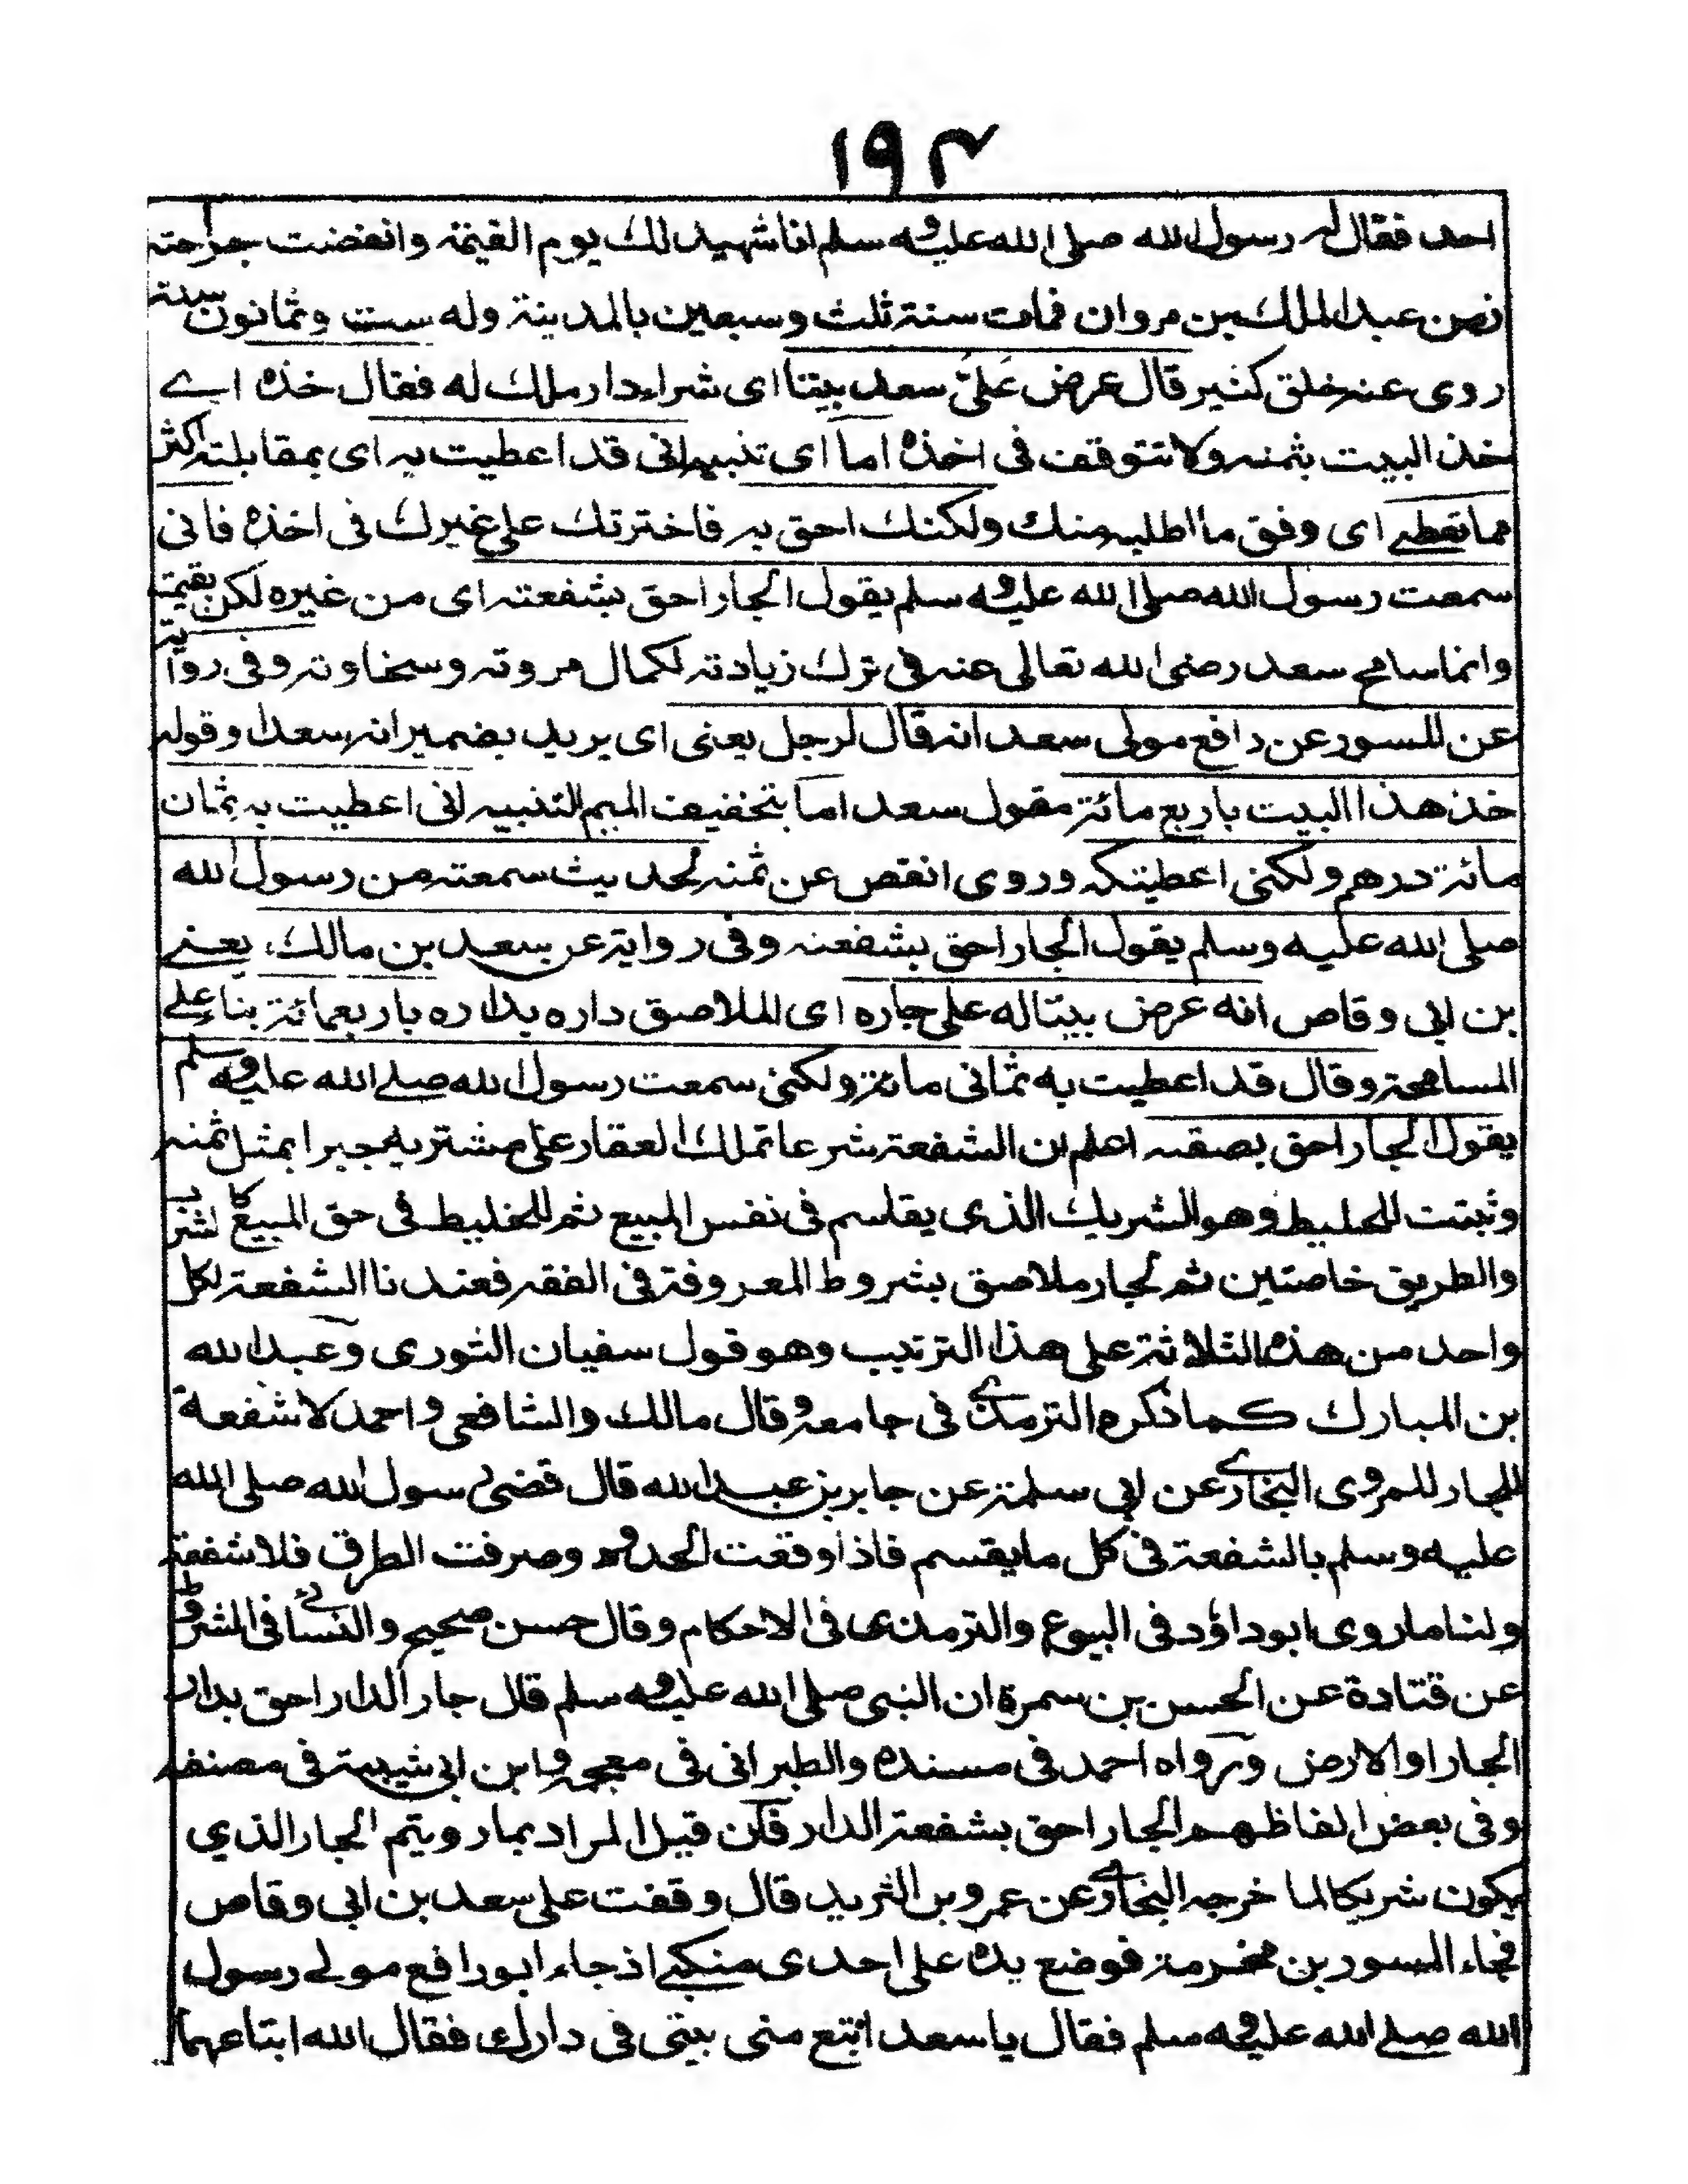 ١٩٣
احد فقال له رسول الله صلى الله عليه وسلم انا شهيد لك يوم القيمة وانقضت جراحته
زمن عبد الملك بن مروان فمات سنة ثلث وسبعين بالمدينة وله ست وثمانون سنة
روى عنه خلق كثير قال عرض عَلَىَّ سعد بيتا اى شراء دار ملك له فقال خذه اے
خذ البيت بثمنه ولا تتوقف فى اخذه اما اى تنبيه انى قد اعطيت به اى بمقابلته اكثر
مما تعطے اى وفق ما اطلبه منك ولكنك احق به فاخترتك على غيرك فى اخذه فانى
سمعت رسول الله صلى الله عليه وسلم يقول الجار احق بشفعته اى من غيره لكن بقيمته
وانما سامح سعد رضى الله تعالى عنه فى ترك زيادته لكمال مروته وسخاوته وفى رواية
عن المسور عن رافع مولى سعد انه قال لرجل يعنى اى يريد بضمير انه سعدا وقوله
خذ هذا البيت باربع مائة مقول سعد اما بتخفيف الميم للتنبيه انى اعطيت به ثمان
مائة درهم ولكنى اعطيتكه وروى انقص عن ثمنه لحديث سمعته من رسول الله
صلى الله عليه وسلم يقول الجار احق بشفعته وفى رواية عن سعد بن مالك، يعنے
بن ابى وقاص انه عرض بيتا له على جاره اى الملاصق داره بداره باربعمائة بناء علے
المسامحة وقال قد اعطيت به ثمانى مائة ولكنى سمعت رسول الله صلے الله عليه وسلم
يقول الجار احق بصقبه اعلم ان الشفعة شرعا تملك العقار على مشتريه جبرا بمثل ثمنه
وثبتت للخليط وهو الشريك الذى يقاسم فى نفس المبيع ثم للخليط فى حق المبيع كالشرب
والطريق خاصتين ثم لجار ملاصق بشروط المعروفة فى الفقه فعندنا الشفعة لكل
واحد من هذه الثلاثة على هذا الترتيب وهو قول سفيان الثورى وعبد الله
بن المبارك كما ذكره الترمذے فى جامعه وقال مالك والشافعى واحمد لا شفعة
للجار لما روى البخارے عن ابى سلمة عن جابر بن عبد الله قال قضى رسول الله صلى الله
عليه وسلم بالشفعة فى كل ما يقسم فاذا وقعت الحدود وصرفت الطرق فلا شفعة
ولنا ما روى ابو داؤد فى البيوع والترمذى فى الاحكام وقال حسن صحيح والنسائے فى الشروط
عن قتادة عن الحسن بن سمرة ان النبى صلى الله عليه وسلم قال جار الدار احق بدار
الجار او الارض ورواه احمد فى مسنده والطبرانى فى معجمه وابن ابى شيبة فى مصنفه
وفى بعض الفاظهم الجار احق بشفعة الدار فان قيل المراد بمار ويتم الجار الذي
يكون شريكا لما خرجه البخارے عن عمرو بن الثريد قال وقفت على سعد بن ابى وقاص
فجاء المسور بن مخرمة فوضع يده على احدى منكبے اذ جاء ابو رافع مولے رسول
الله صلے الله عليه وسلم فقال يا سعد ابتع منى بيتى فى دارك فقال الله ابتاعهما